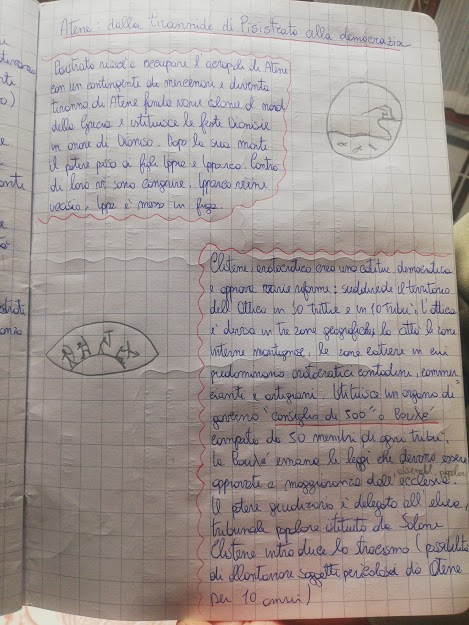 Atene: dalla tirannide di Pisistrato alla democrazia
Pisistrato riesce a occupare l'acropoli di Atene
con un contingente da mercenari e diventa
tiranno di Atene fonda varie colonie al nord
della Grecia e istituisce le feste Dionisie
in onore di Dioniso. Dopo la sua morte
il potere passa ai figli Ippia e Ipparco. Contro
di loro vi sono congiure, Ipparco viene
ucciso, Ippia è messo in fuga.
Clistene, aristocratico crea una costituz. democratica
e approva varie riforme: suddivide il territorio
dell'Attica in 30 trittie e in 10 tribù. L'attica
è divisa in tre zone geografiche la città le zone
interne montagnose, le zone costiere in cui
predominano aristocratici contadini, commer
cianti e artigiani. Istituisce un organo di
governo "consiglio di 500" o Boulé
composto da 50 membri di ogni tribù.
la Boulé emana le leggi che devono essere
approvate a maggioranza dall'ecclesia.
assembl. popolare
Il potere giudiziario è delegato all'eliea,
tribunale popolare istituito da Solone
Clistene introduce lo ostracismo (possibilità
di allontanare soggetti pericolosi da Atene
per 10 anni)